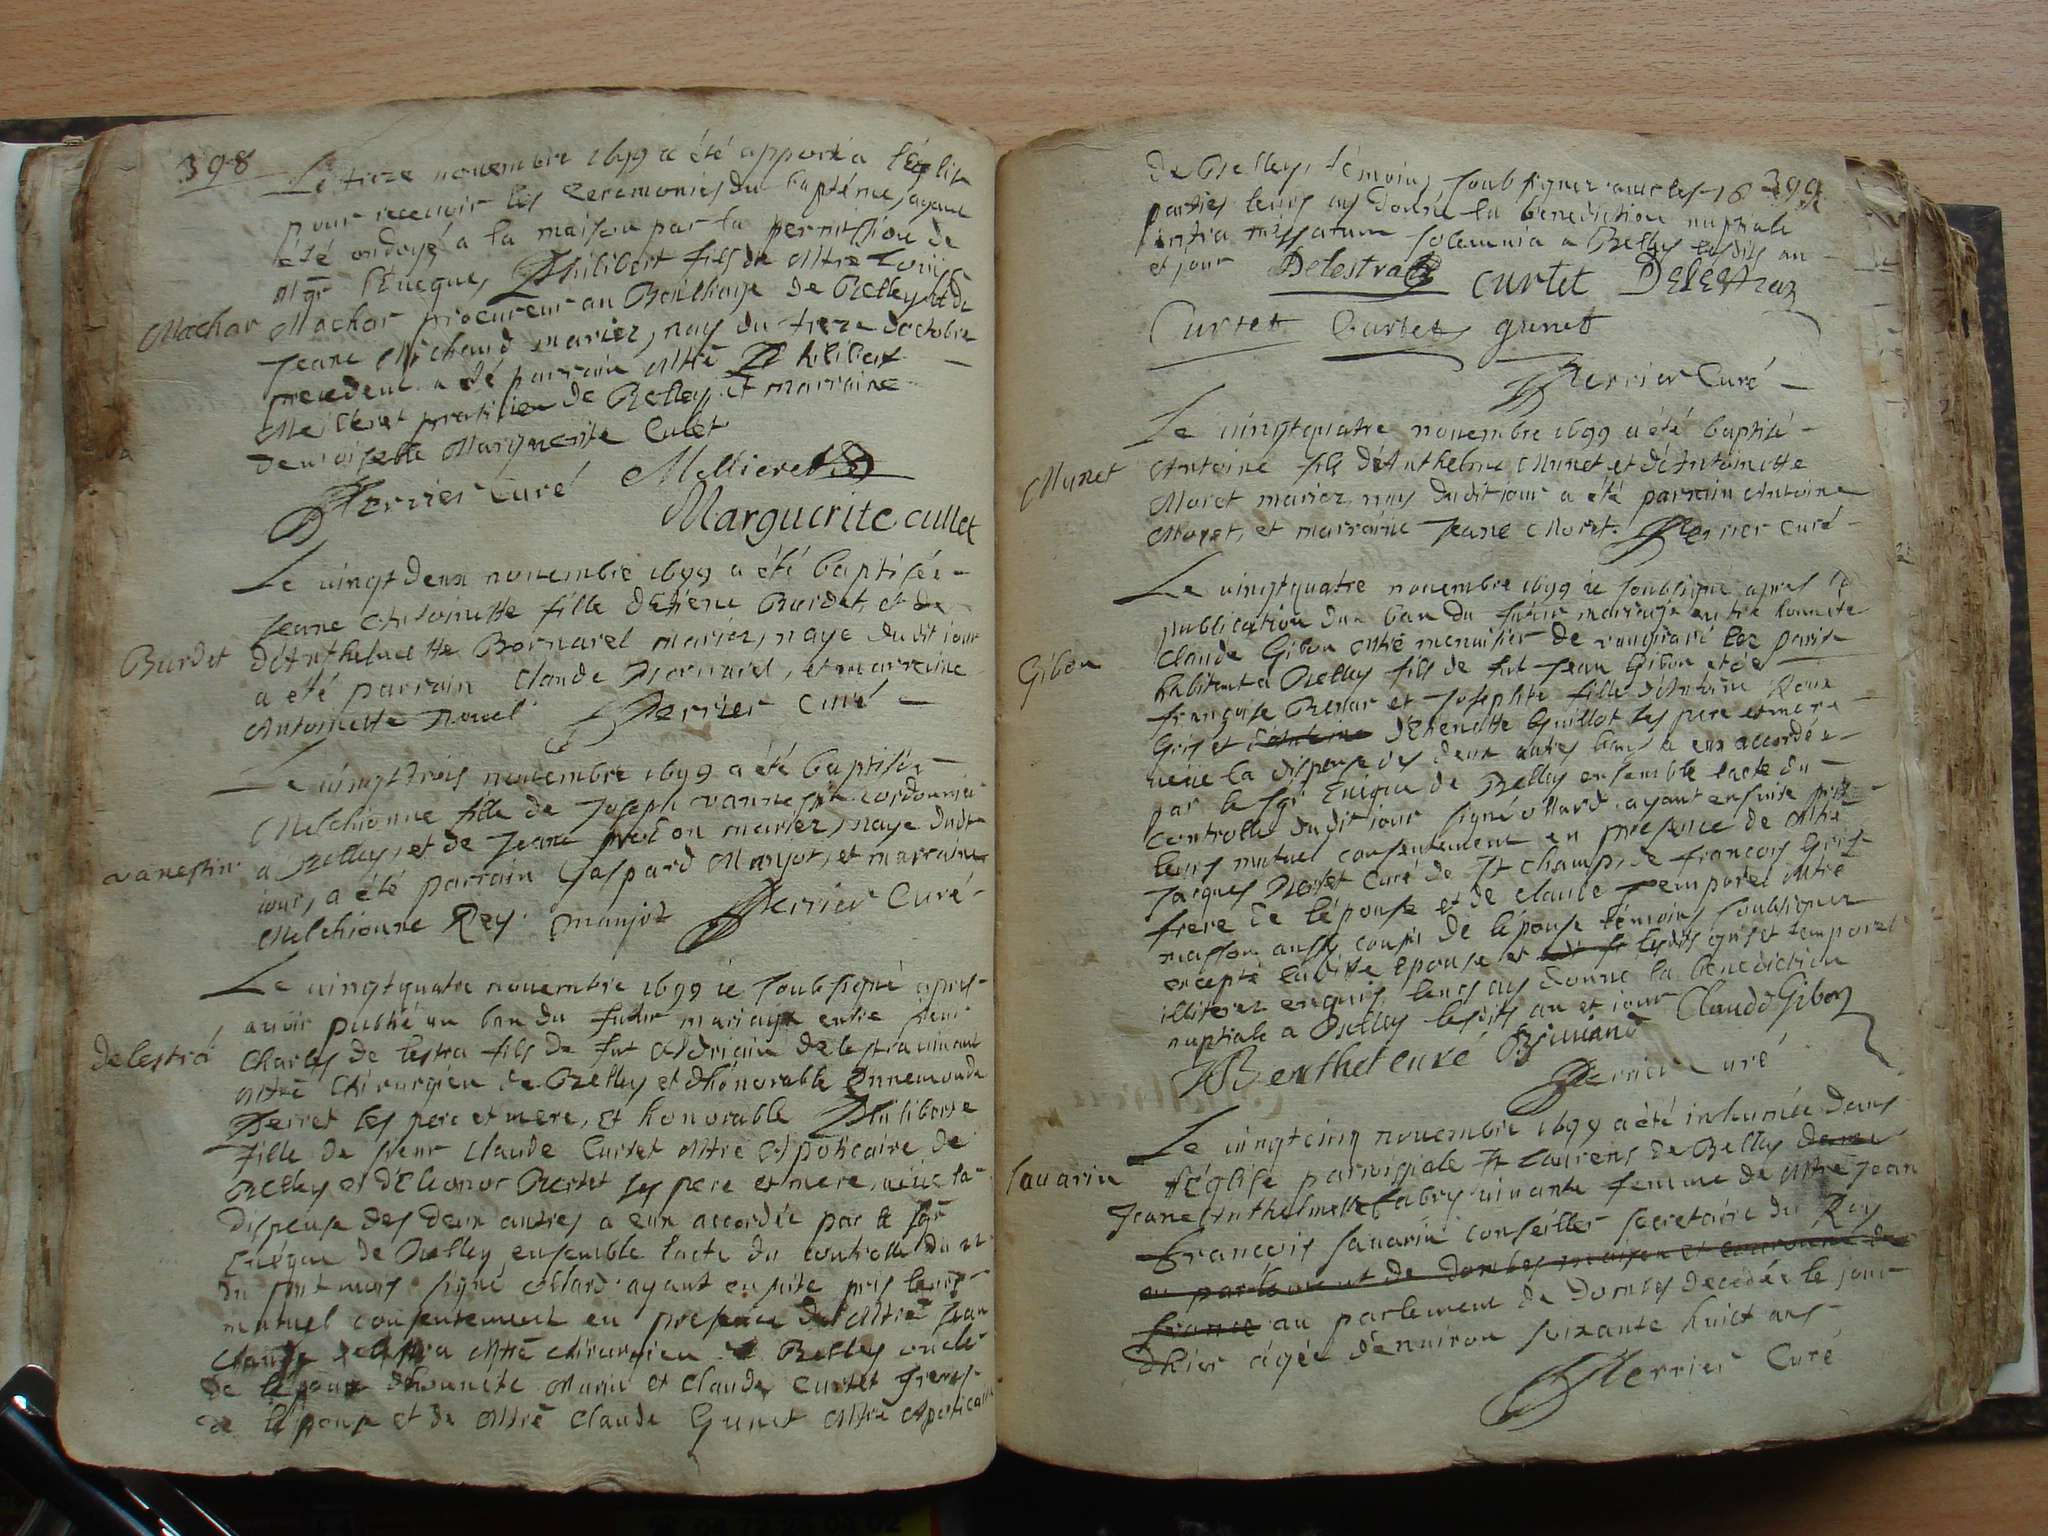 398
Le treze novembre 1699 a été apporté a l'Église
pour recevoir les ceremonies du baptéme, ayant
été ondoyé a la maison par la permission de
Mgr l'Evêque, Philibert fils de Mtre Louis
Machar Machar procureur au Bailliage de Belley et de
Jeane Michaud mariez, nay du treze d'octobre
precedent a été parrain Mtre Philibert
Meilleret praticien de Belley, et marraine
demoiselle Marguerite Culet
Perrier Curé Mellieret
Marguerite cullet
Le vingtdeux novembre 1699 a été baptisée
Jeane Antoinette fille d'Etiene Burdet, et de
Burdet d'Anthelmette Bornarel mariez, naye dudit jour
a été parrain Claude Bornarel, et marraine
Antoinette Perrier Curé
Le vingttrois novembre 1699 a été baptisée
Melchionne fille de Joseph vannestin cordonnier
vanestin a Belley, et de Jeane mariez, naye dudit
jour, a été parrain Gaspard Manjot, et marraine
Melchionne Rey. manjot Perrier Curé
Le vingtquatre novembre 1699 je soubsigné apres
avoir publié un ban du futur mariage entre sieur
Delestra Charles de lestra fils de fut Adriain delestra vivant
Mtre Chirurgien de Belley et d'honorable Ennemonde
Perret ses pere et mere, et honorable Philiberte
fille de sieur Claude Curtet Mtre Apoticaire de
Belley et d'Eleonor Bertet ses pere et mere, veüe la
dispense des deux autres a eux accordée par le sgr
Evêque de Belley ensemble l'acte du controlle du 22
du pnt mois signé Mard ayant ensuite pris leurs
mutuel consentement en presence de Mtre Jean
Claude delestra Mtre chirurgien de Belley oncle
de l'époux d'honnete Marin et Claude Curtet freres
de l'épouse et de Mtre Claude Gunet Mtre Apoticaire
de Belley, témoins soubsignez avec les 18 399
parties leurs ay donné la benediction nuptiale
intra missarum solemnia a Belley lesdits an
et jour Delestra curtet Delestraz
Curtet Curtet gunet
Perrier Curé
Le vingtquatre novembre 1699 a été baptisé
Munet Antoine fils d'Anthelme Munet et d'Antoinette
Moret mariez, nay dudit jour a été parrain Antoine
Moret, et marraine Jeane Moret. Perrier Curé
Le vingtquatre novembre 1699 je soubsigné apres la
publication d'un ban du futur mariage entre honnete
Gibon Claude Gibon Mtre menuisier de vaugirard lez paris
habitant a Belley fils de fut Jean Gibon et de
françoise Benar et Josephte fille d'Antoine Roux
Gris et d'Etienette Guillot ses pere et mere
veüe la dispense des deux autres bans a eux accordée
par le sgr Evêque de Belley ensemble l'acte du
controlle dudit jour signé Mard ayant ensuite pris
leurs mutuel consentement en presence de Mtre
Jacques Berthet Curé de St Champ, de françois Gris
frere de l'épouse et de Claude Temporel Mtre
masson aussy cousin de l'épouse témoins soubsignez
excepté ladite épouse et lesdits gris et temporel
illiterez enquis, leurs ay donné la benediction
nuptiale a Belley lesdits an et jour Claude Gibon
Berthet curé
Perrier Curé
Le vingtcinq novembre 1699 a été inhumée dans
Savarin l'église parroissiale St Laurens de Belley dame
Jeane Anthelmette fabry vivante femme de Mtre Jean
François Savarin conseiller secretaire du Roy
au parlement de dombes maison et couronne de
france au parlement de Dombes decedée le jour
d'hier agée d'environ soixante huict ans
Perrier Curé